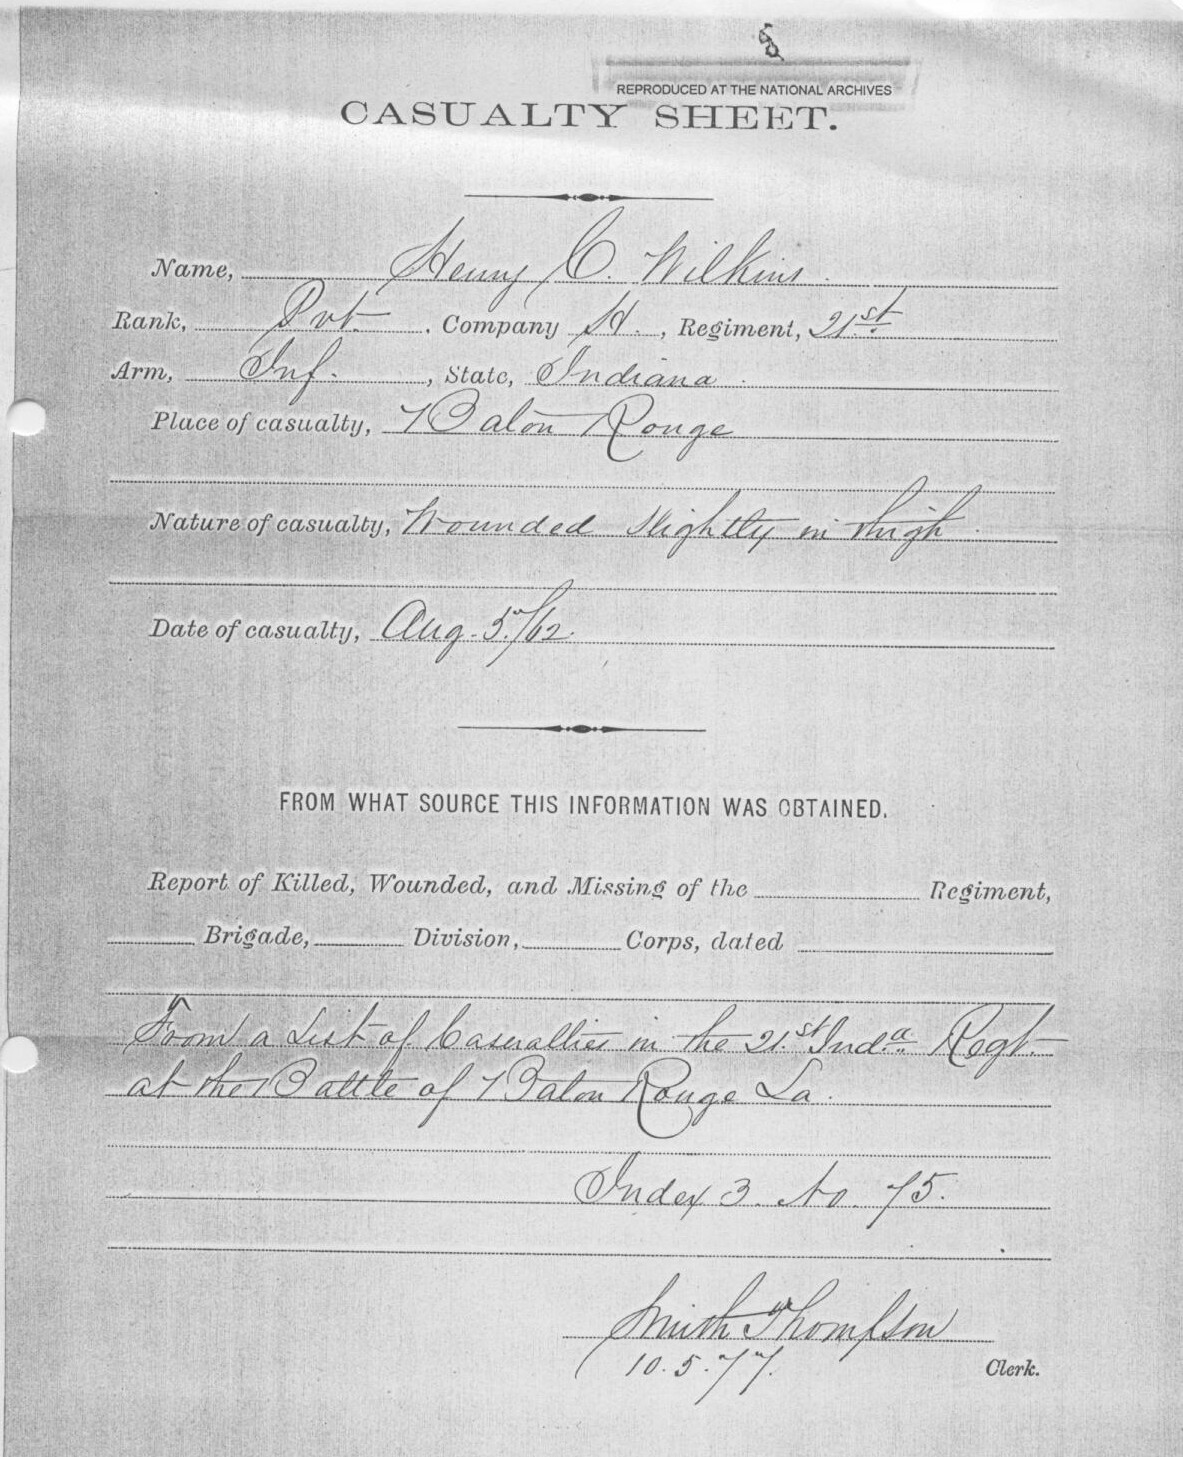 REPRODUCED AT THE NATIONAL ARCHIVES
CASUALTY SHEET.
Name, Henry C. Wilkins.
Rank, Pvt. Company H., Regiment, 21st
Arm, Inf., State, Indiana.
Place of casualty, Baton Rouge
Nature of casualty, Wounded Slightly in thigh
Date of casualty, Aug. 5"/62.
FROM WHAT SOURCE THIS INFORMATION WAS OBTAINED.
Report of Killed, Wounded, and Missing of the Regiment,
Brigade, Division, Corps, dated
From a List of Casualties in the 21st Inda Regt.
at the Battle of Baton Rouge La.
Index 3. No. 75.
Smith Thompson
10.5.77. Clerk.